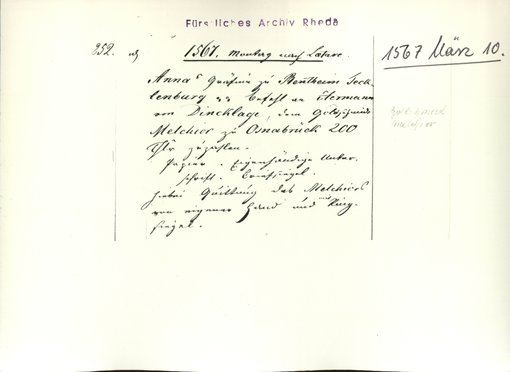 Fürstliches Archiv Rheda
252.
1567. Montag nach Lätare.
1567 März 10.
Anna's Gräfin zu Bentheim Teck-
lenburg Befehl an Hermann
von Dincklage, dem Goldschmied
Melchior zu Osnabrück 200
Thlr zu zahlen.
Papier. Eigenhändige Unter-
schrift. Briefsiegel.
Hiebei Quittung des Melchiors
von eigener Hand und Ring-
siegel.